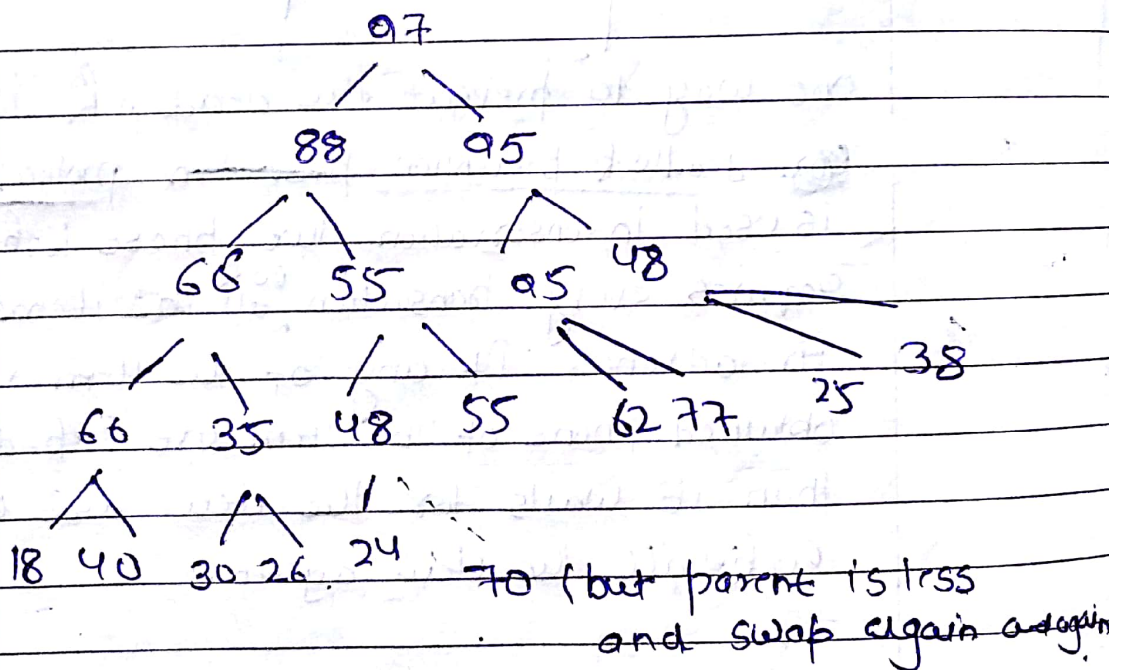 97
88 95
66 55 95 48
66 35 48 55 62 77 25 38
18 40 30 26 24 70 (but parent is less
and swap again and again